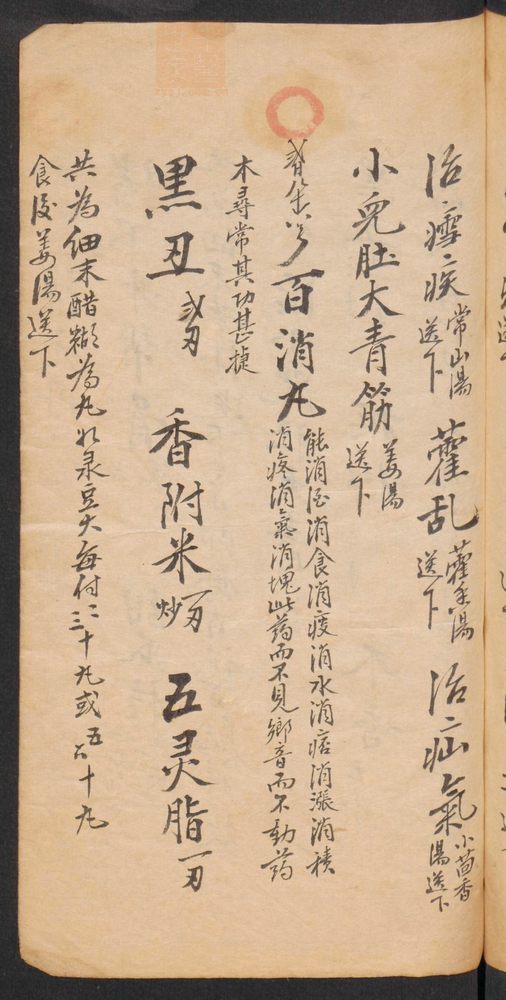 治瘧疾 常山湯送下 藿乱 藿香湯送下 治疝氣 小茴香湯送下
小兒肚大青筋 姜湯送下
百消丸 能消酒消食消痰消水消痞消漲消積
消疼消氣消塊此葯而不見鄉音而不動葯
木尋常其功甚捷
黑丑 香附米 炒 五灵脂 一刃
共為細末醋糊為丸如彔豆大每付二三十丸或五六十丸
食後姜湯送下